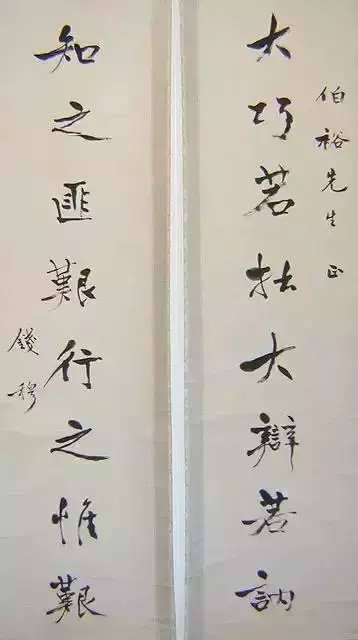 伯裕先生正
大巧若拙大辯若訥
知之匪艱行之惟艱
錢穆